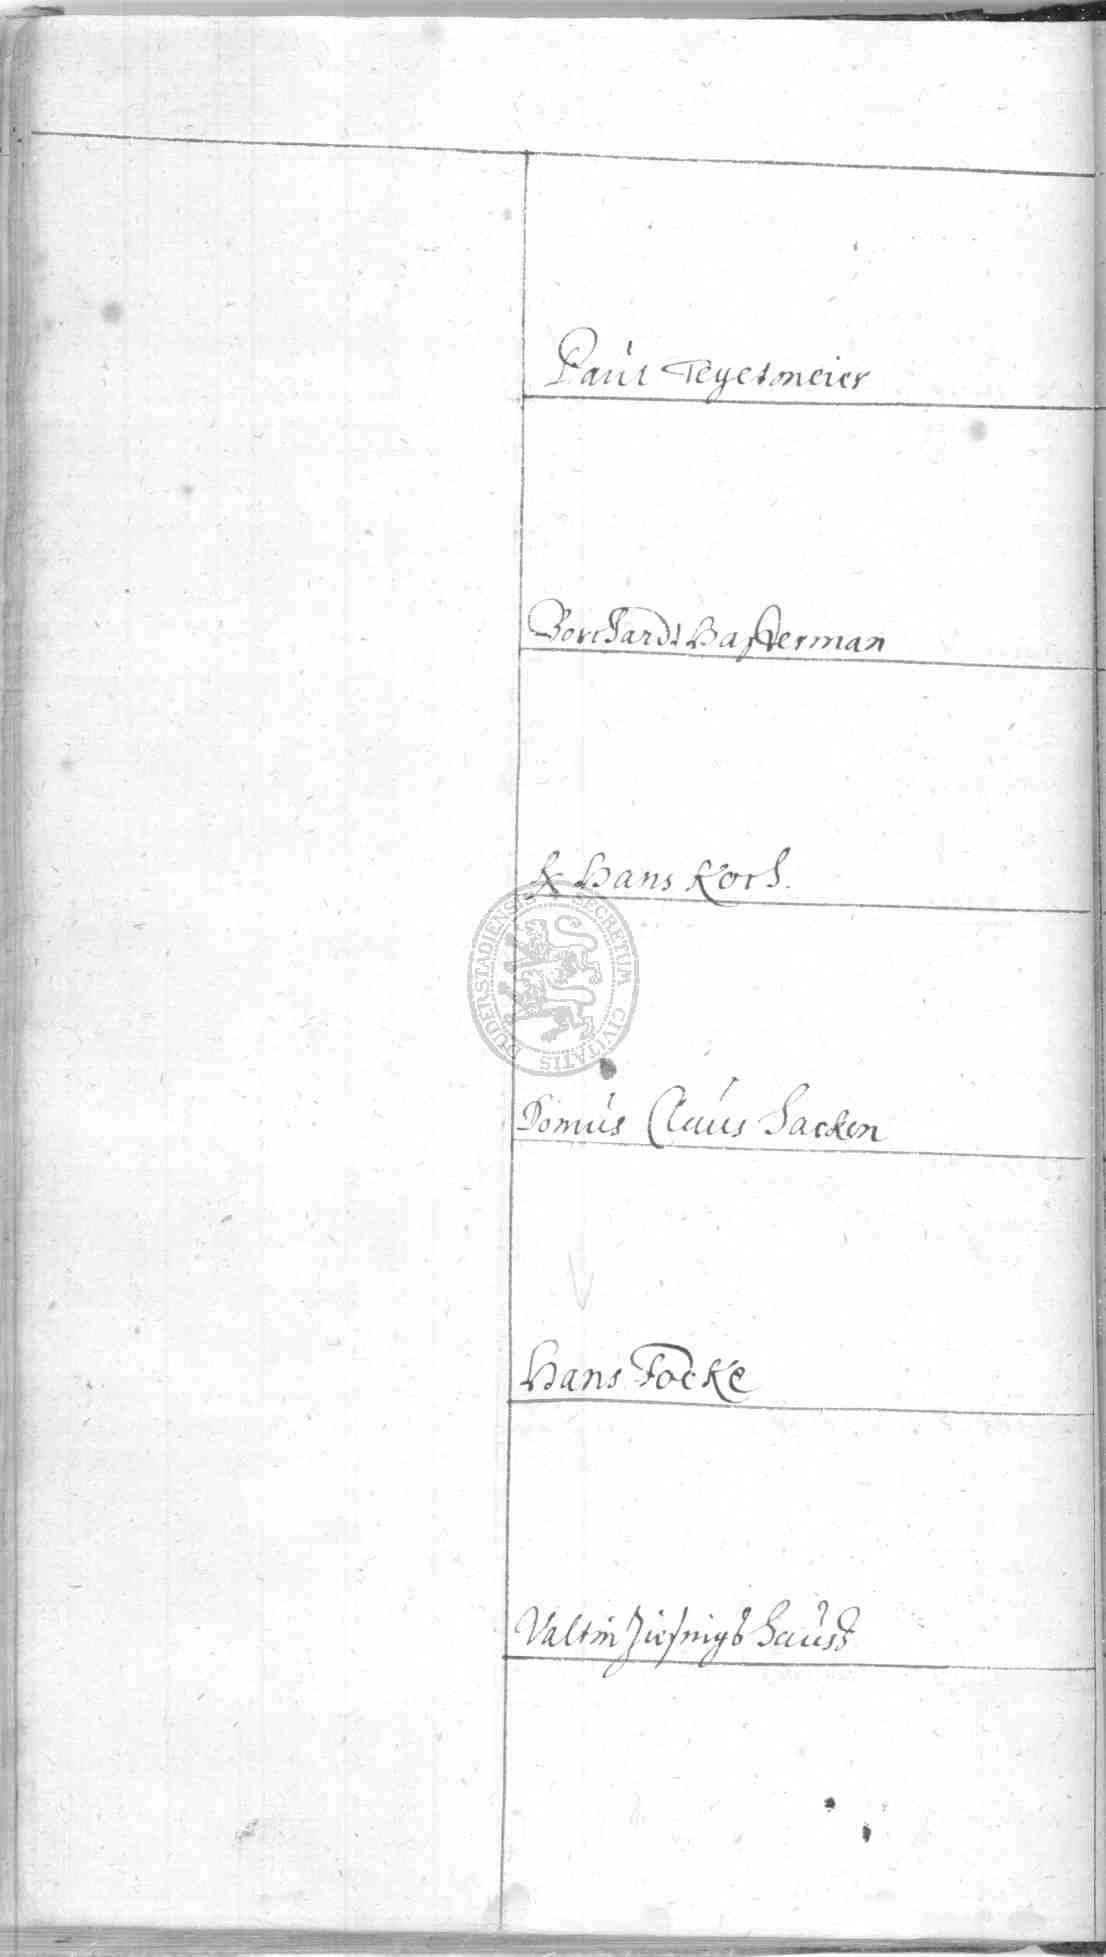 Paul Tegetmeier
Borchardt Hasterman
Hans Koch.
SECRETUM CIVITATIS DUDERSTADIENSIS
Domus Claus Hacken
Hans Focke
Valtin Hauss